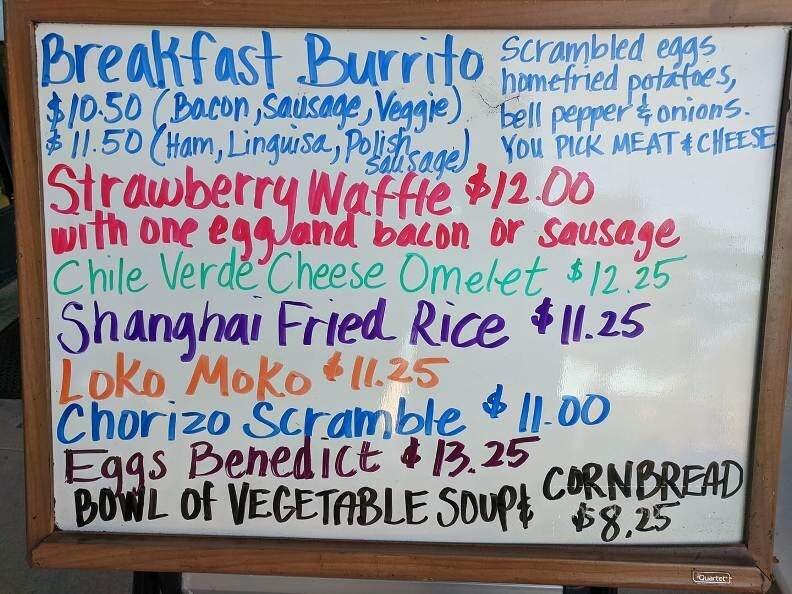 Breakfast Burrito
$10.50 (Bacon, Sausage, Veggie)
$11.50 (Ham, Linguisa, Polish sausage)
Scrambled eggs
homefried potatoes,
bell pepper & onions.
YOU PICK MEAT & CHEESE
Strawberry Waffle $12.00
with one egg and bacon or sausage
Chile Verde Cheese Omelet $12.25
Shanghai Fried Rice $11.25
Loko Moko $11.25
Chorizo Scramble $11.00
Eggs Benedict $13.25
BOWL Of VEGETABLE SOUP & CORNBREAD
$8.25
Quartet